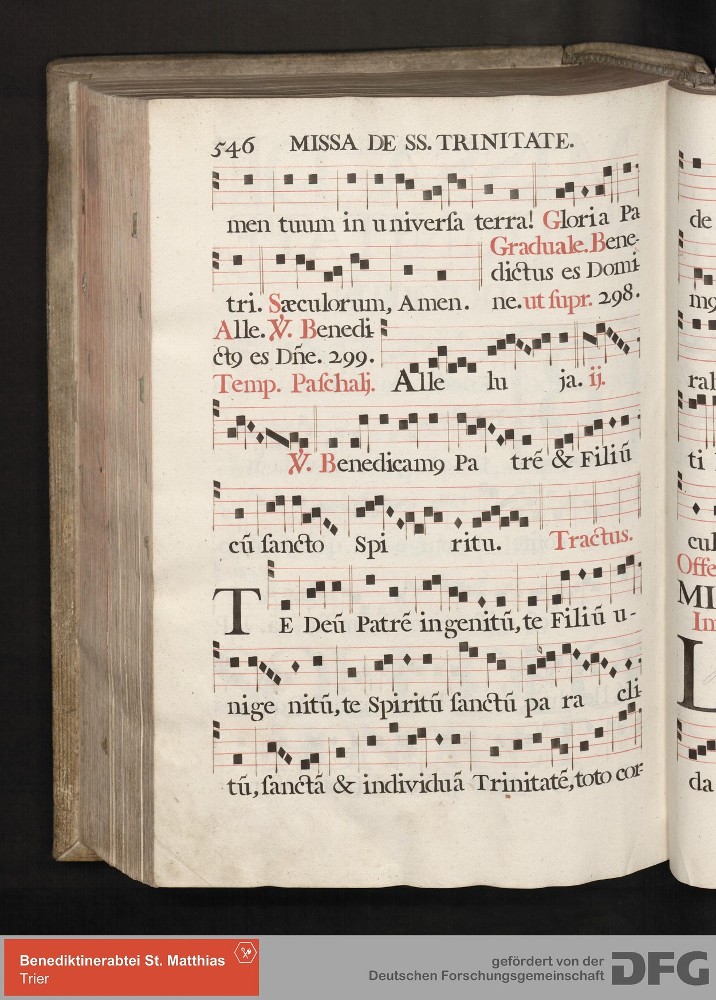 546 MISSA DE SS. TRINITATE.
men tuum in univerſa terra! Gloria Pa
Graduale. Bene-
dictus es Domi-
tri. Sæculorum, Amen. ne. ut ſupr. 298.
Alle. ℣. Benedi-
ct9 es Dn̄e. 299.
Temp. Paſchalj. Alle lu ja. ij.
℣. Benedicam9 Pa trē & Filiū
cū ſancto Spi ritu. Tractus.
TE Deū Patrē ingenitū, te Filiū u-
nige nitū, te Spiritū ſanctū pa ra cli-
tū, ſanctā & individuā Trinitatē, toto cor-
de
m9
ral
ti
cul
Offe
MI
Im
L
da
Benediktinerabtei St. Matthias
Trier
gefördert von der
Deutschen Forschungsgemeinschaft DFG